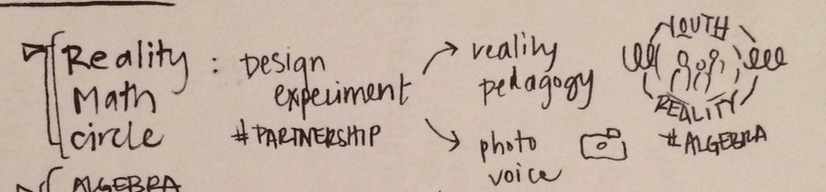 Reality : Design
Math experiment
circle #PARTNERSHIP
reality
pedagogy
photo
voice
YOUTH
REALITY
#ALGEBRA
ALGEBRA